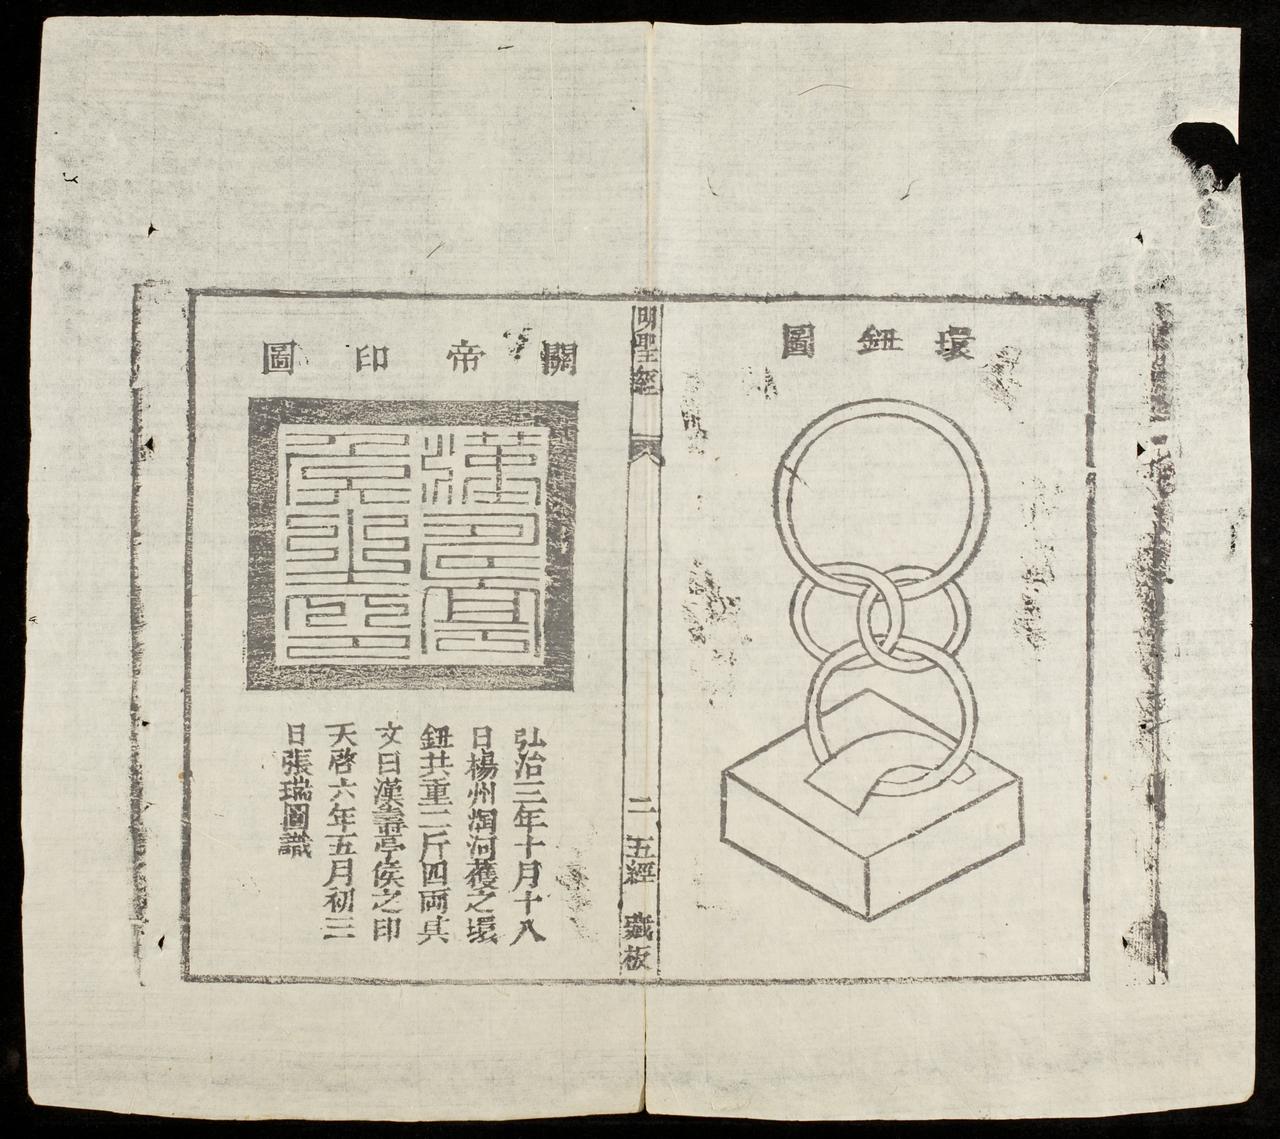 環鈕圖
明聖經
二
五經
藏板
關帝印圖
漢壽亭
侯之印
弘治三年十月十八
日楊州河獲之環
鈕共重二斤四兩其
文曰漢壽亭侯之印
天啓六年五月初三
日張瑞圖識